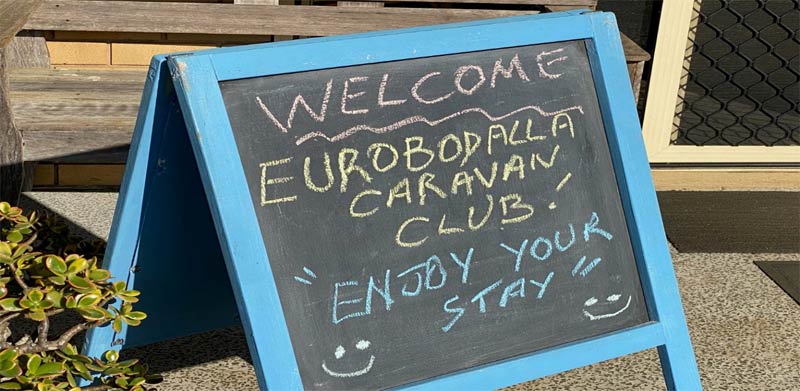 WELCOME
EUROBODALLA
CARAVAN
CLUB!
"ENJOY YOUR
STAY"